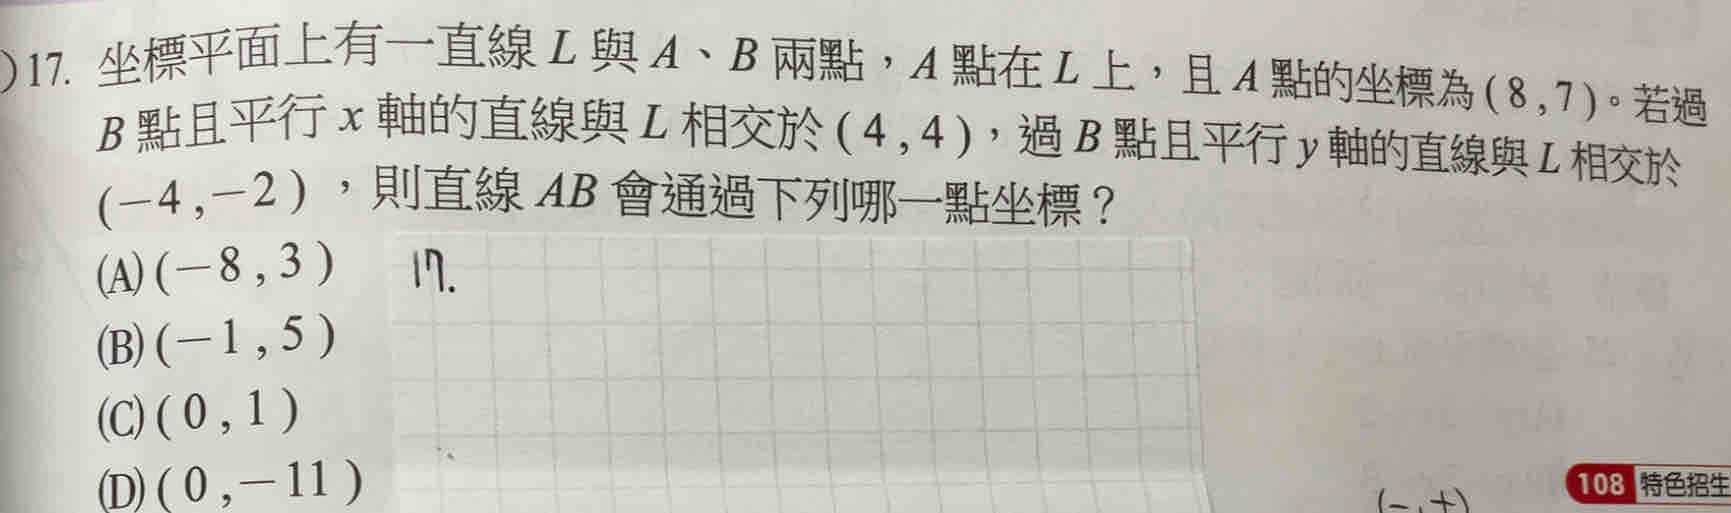 )17. 坐標平面上有一直線 L 與 A、B 兩點，A 點在 L 上，且 A 點的坐標為 ( 8 , 7 )。若過
B 點且平行 x 軸的直線與 L 相交於 ( 4 , 4 )，過 B 點且平行 y 軸的直線與 L 相交於
( −4 , −2 )，則直線 AB 會通過下列哪一點坐標？
(A) ( −8 , 3 )
17.
(B) ( −1 , 5 )
(C) ( 0 , 1 )
(D) ( 0 , −11 )
108 特色招生
(−,+)